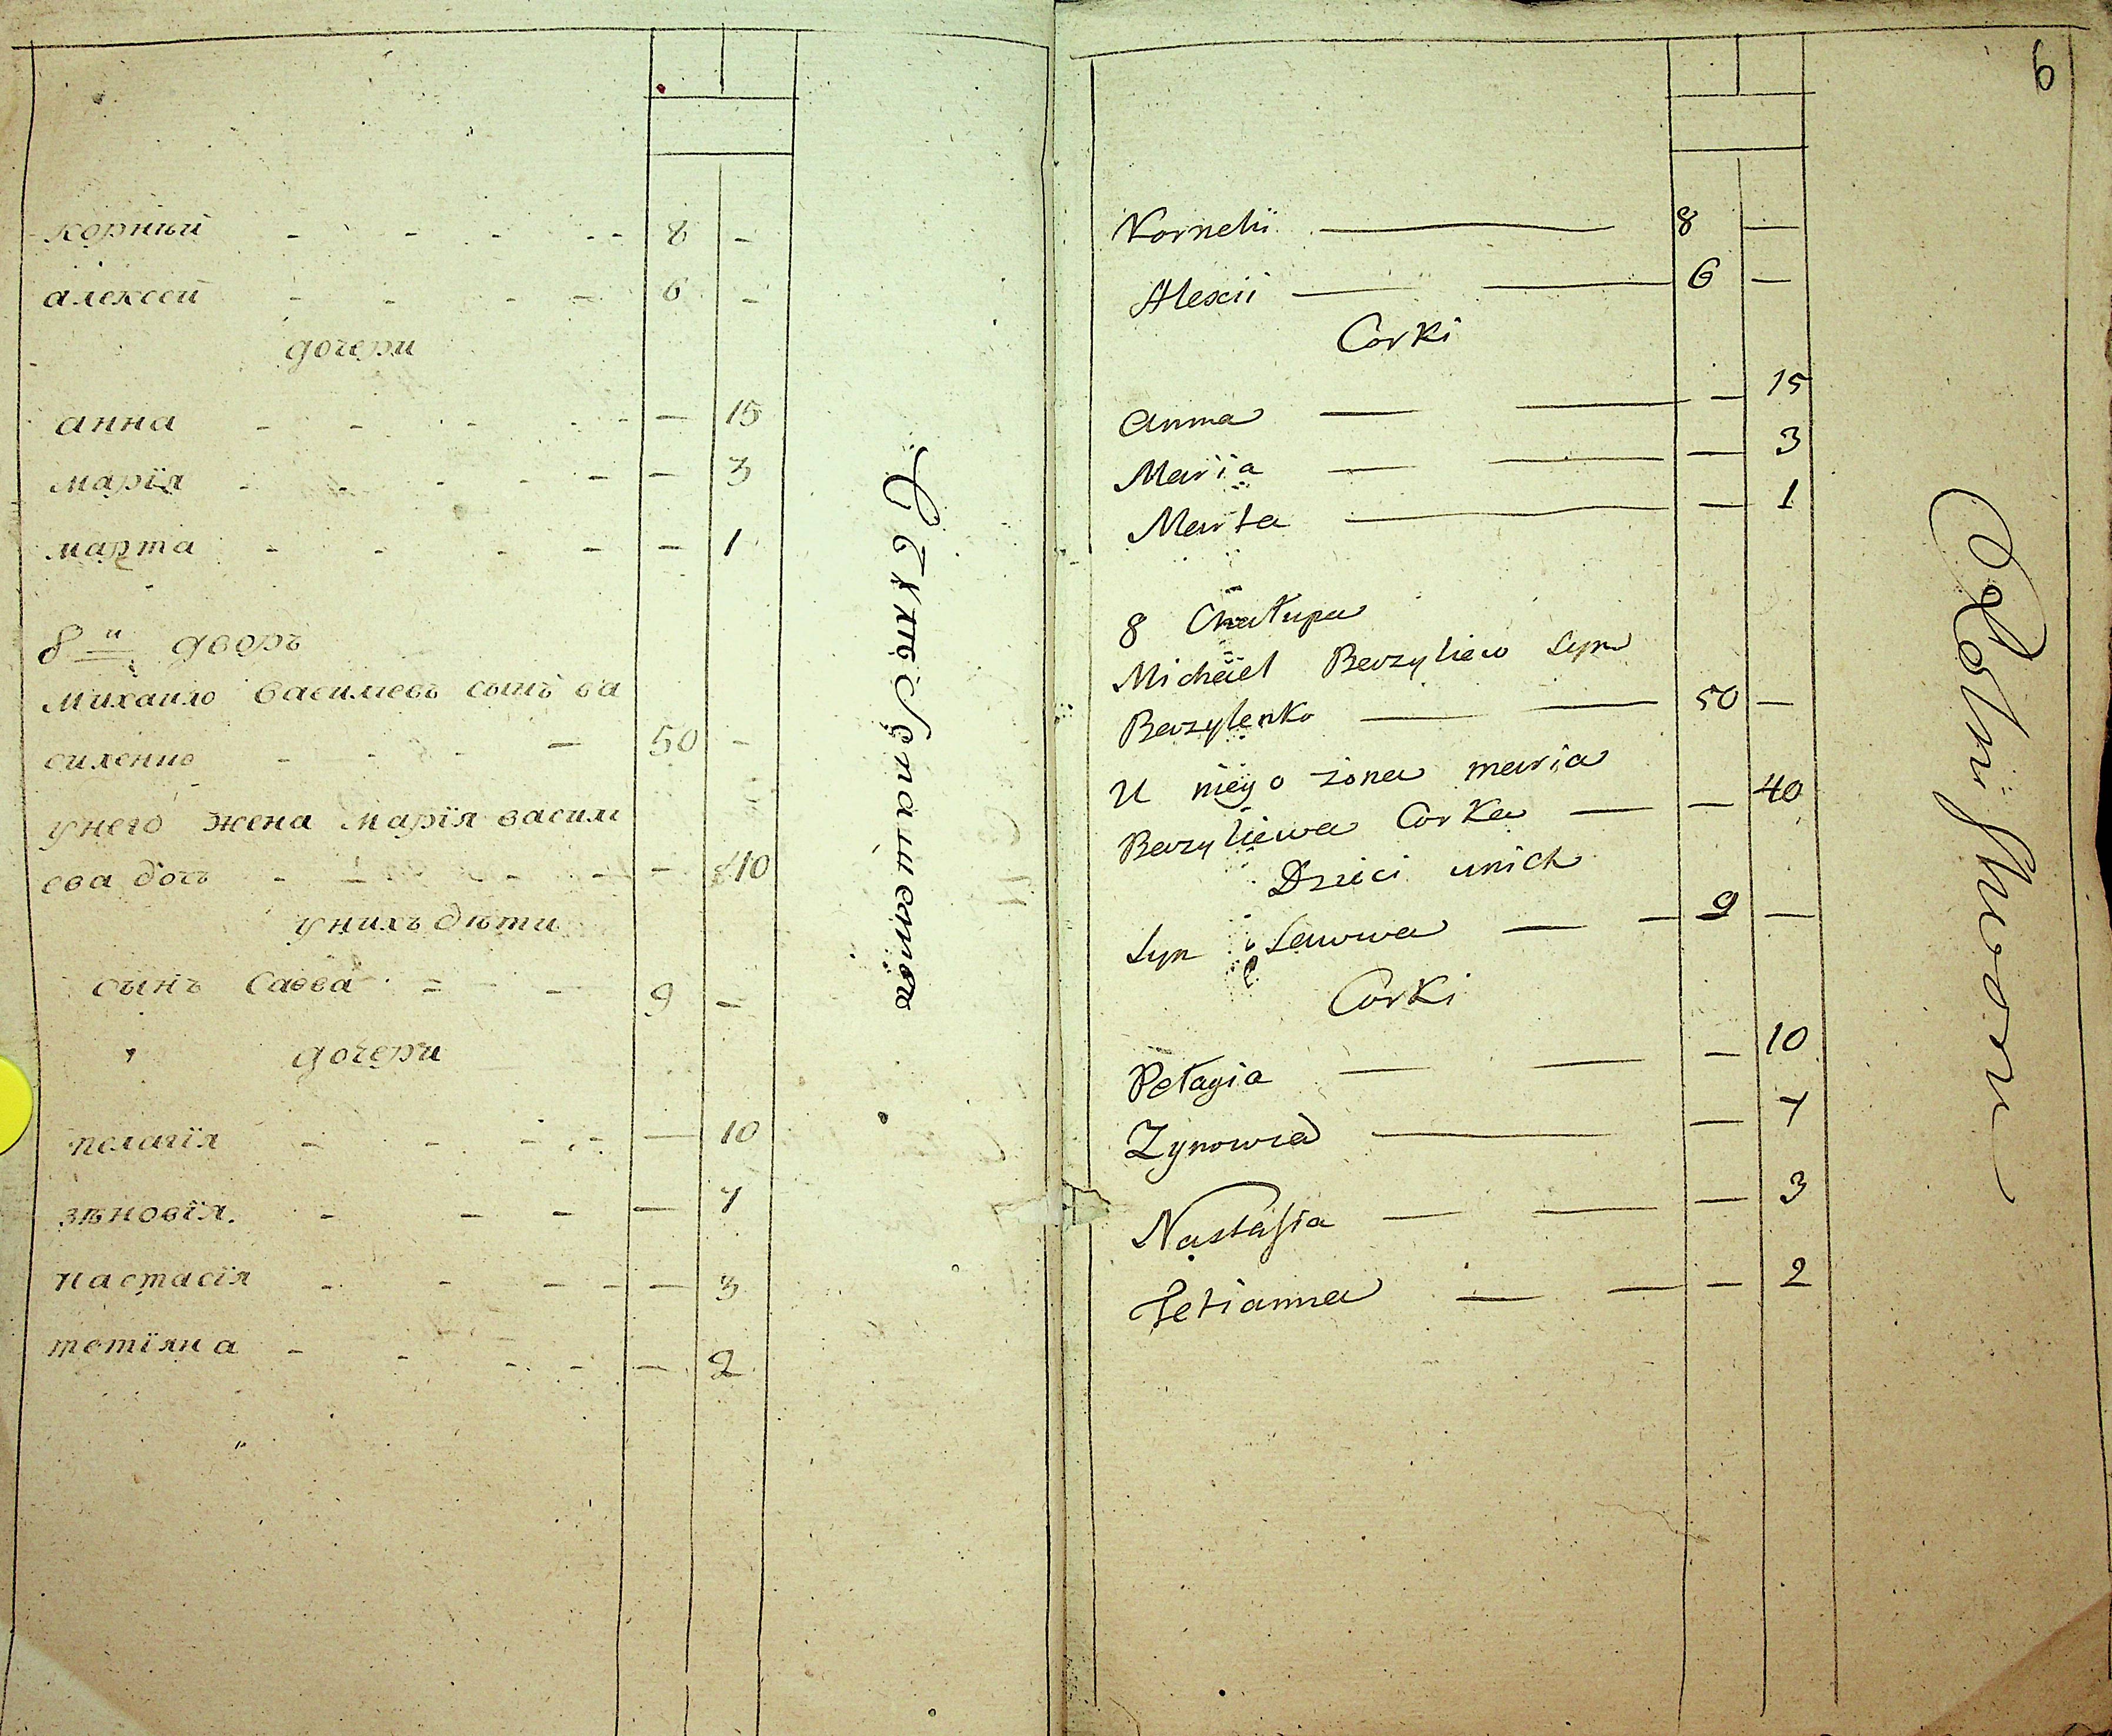 корнѣй - - - - - 8 -
алексей - - - - 6 -
дочери
анна - - - - - - — 15
марїя - - - - - — 3
марта - - - - — 1
8й дворъ
михаило василиевъ сынъ ва
силенко - - - — 50 -
унего жена марїя васили
ева дочь - - - - - — 40
унихъ дѣти
сынъ Савва - - - 9 -
дочери
пелагїя - - - - — 10
зѣновїя. - - - — 7
настасїя - - - - — 3
тетїяна - - - - — 2
6
Kornelii — 8 —
Alexii — — 6 —
Corki
Anna — — — 15
Maria — — — 3
Marta — — 1
8 Chałupa
Michael Bazyliew Syn
Bazylenko — — 50 —
U niego żona maria
Bazyliewa Corka — — 40
Dzieci unich
Syn Sawwa — — 9 —
Corki
Pełagia — — — 10
Zynowia — — 7
Nastasia — — — 3
Tetianna — — — 2